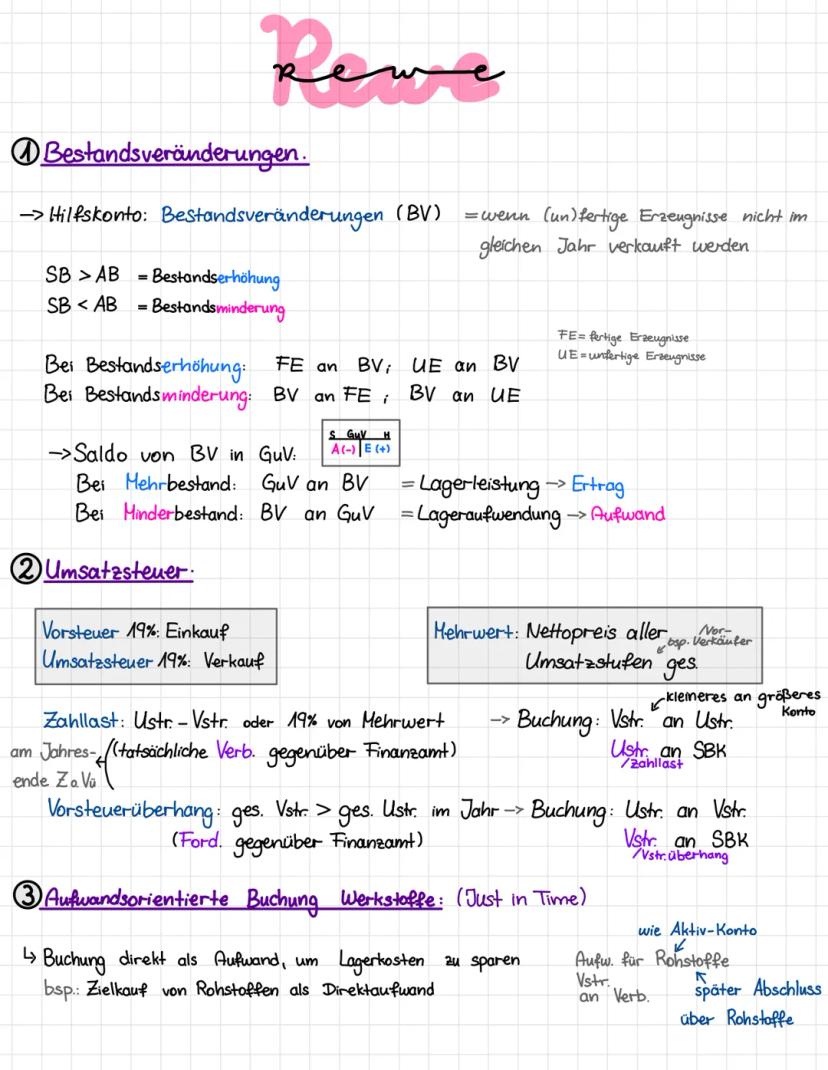 Rewe
① Bestandsveränderungen.
-> Hilfskonto: Bestandsveränderungen (BV) = wenn (un)fertige Erzeugnisse nicht im
gleichen Jahr verkauft werden
SB > AB = Bestandserhöhung
SB < AB = Bestandsminderung
FE = fertige Erzeugnisse
UE = unfertige Erzeugnisse
Bei Bestandserhöhung: FE an BV; UE an BV
Bei Bestandsminderung: BV an FE; BV an UE
S GuV H
A (-) E (+)
-> Saldo von BV in GuV:
Bei Mehrbestand: GuV an BV = Lagerleistung -> Ertrag
Bei Minderbestand: BV an GuV = Lageraufwendung -> Aufwand
② Umsatzsteuer.
Vorsteuer 19%: Einkauf
Umsatzsteuer 19%: Verkauf
Mehrwert: Nettopreis aller
bsp. Vor-
Verkäufer
Umsatzstufen ges.
kleineres an größeres
Konto
Zahllast: Ustr. - Vstr. oder 19% von Mehrwert -> Buchung: Vstr. an Ustr.
am Jahres-
ende Z.a.Vü
(tatsächliche Verb. gegenüber Finanzamt) Ustr. an SBK
/Zahllast
Vorsteuerüberhang: ges. Vstr. > ges. Ustr. im Jahr -> Buchung: Ustr. an Vstr.
(Ford. gegenüber Finanzamt) Vstr. an SBK
/Vstr.überhang
③ Aufwandsorientierte Buchung Werkstoffe: (Just in Time)
wie Aktiv-Konto
↳ Buchung direkt als Aufwand, um Lagerkosten zu sparen
bsp.: Zielkauf von Rohstoffen als Direktaufwand
Aufw. für Rohstoffe
Vstr.
an Verb.
später Abschluss
über Rohstoffe